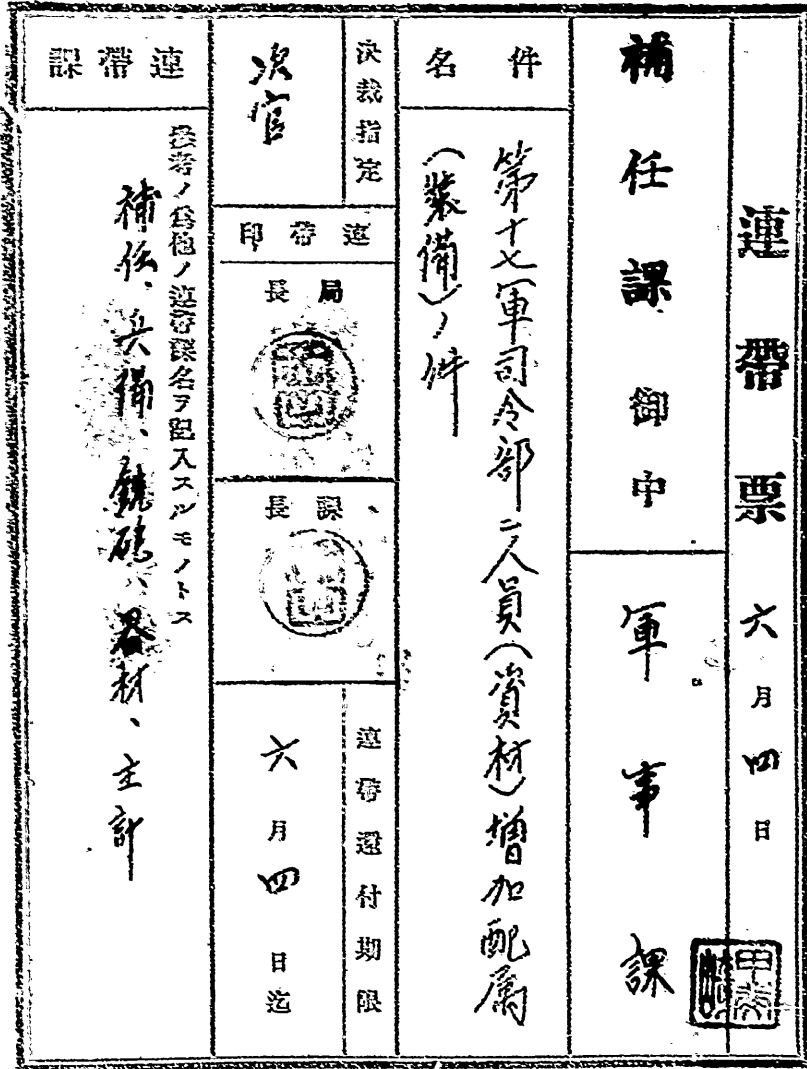 連帶票 六月四日
補任課御中
軍事課
件名
第十七軍司令部ニ人員(資材)増加配属
(装備)ノ件
決裁指定
次官
連帶印
局長
課長
連帶還付期限
六月四日迄
連帶課
參考ノ爲他ノ連帶課名ヲ記入スルモノトス
補任、兵備、銃砲、器材、主計